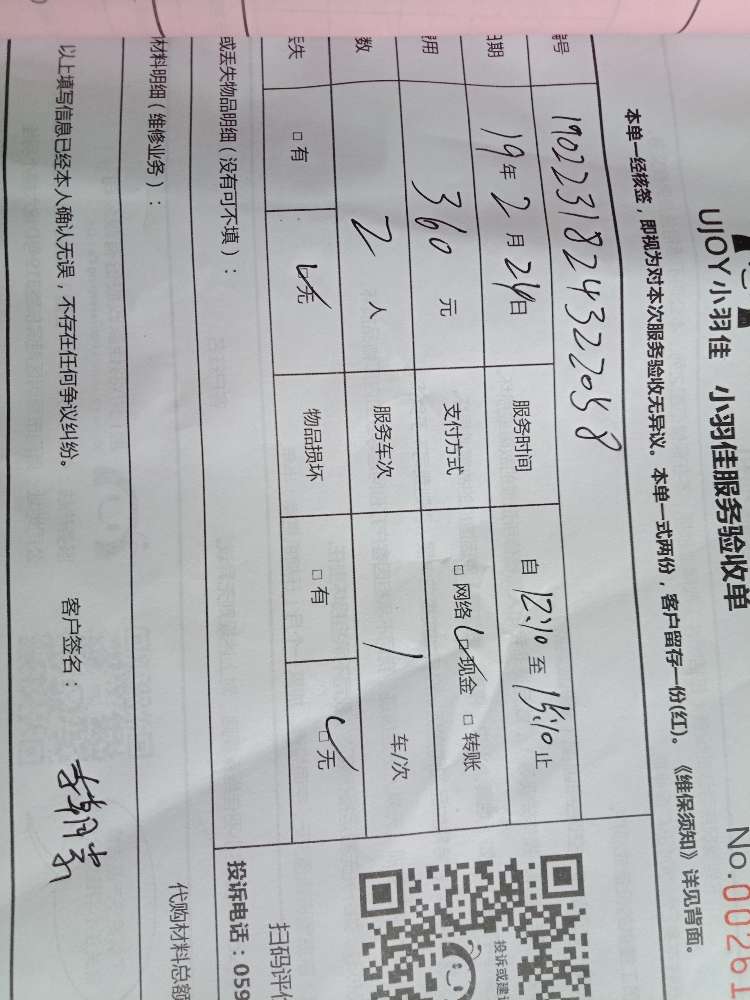 UJOY小羽佳 小羽佳服务验收单
No.00261
本单一经核签，即视为对本次服务验收无异议。本单一式两份，客户留存一份(红)。《维保须知》详见背面。
号 1902231824322058
日期 19年2月24日 服务时间 自12:10至15:10止
用 360元 支付方式 □网络 □现金 □转账
数 2人 服务车次 1车/次
丢失 □有 □无 物品损坏 □有 □无
或丢失物品明细（没有可不填）：
材料明细（维修业务）：
以上填写信息已经本人确认无误，不存在任何争议纠纷。 客户签名：
投诉或建
扫码评价
投诉电话：059
代购材料总额